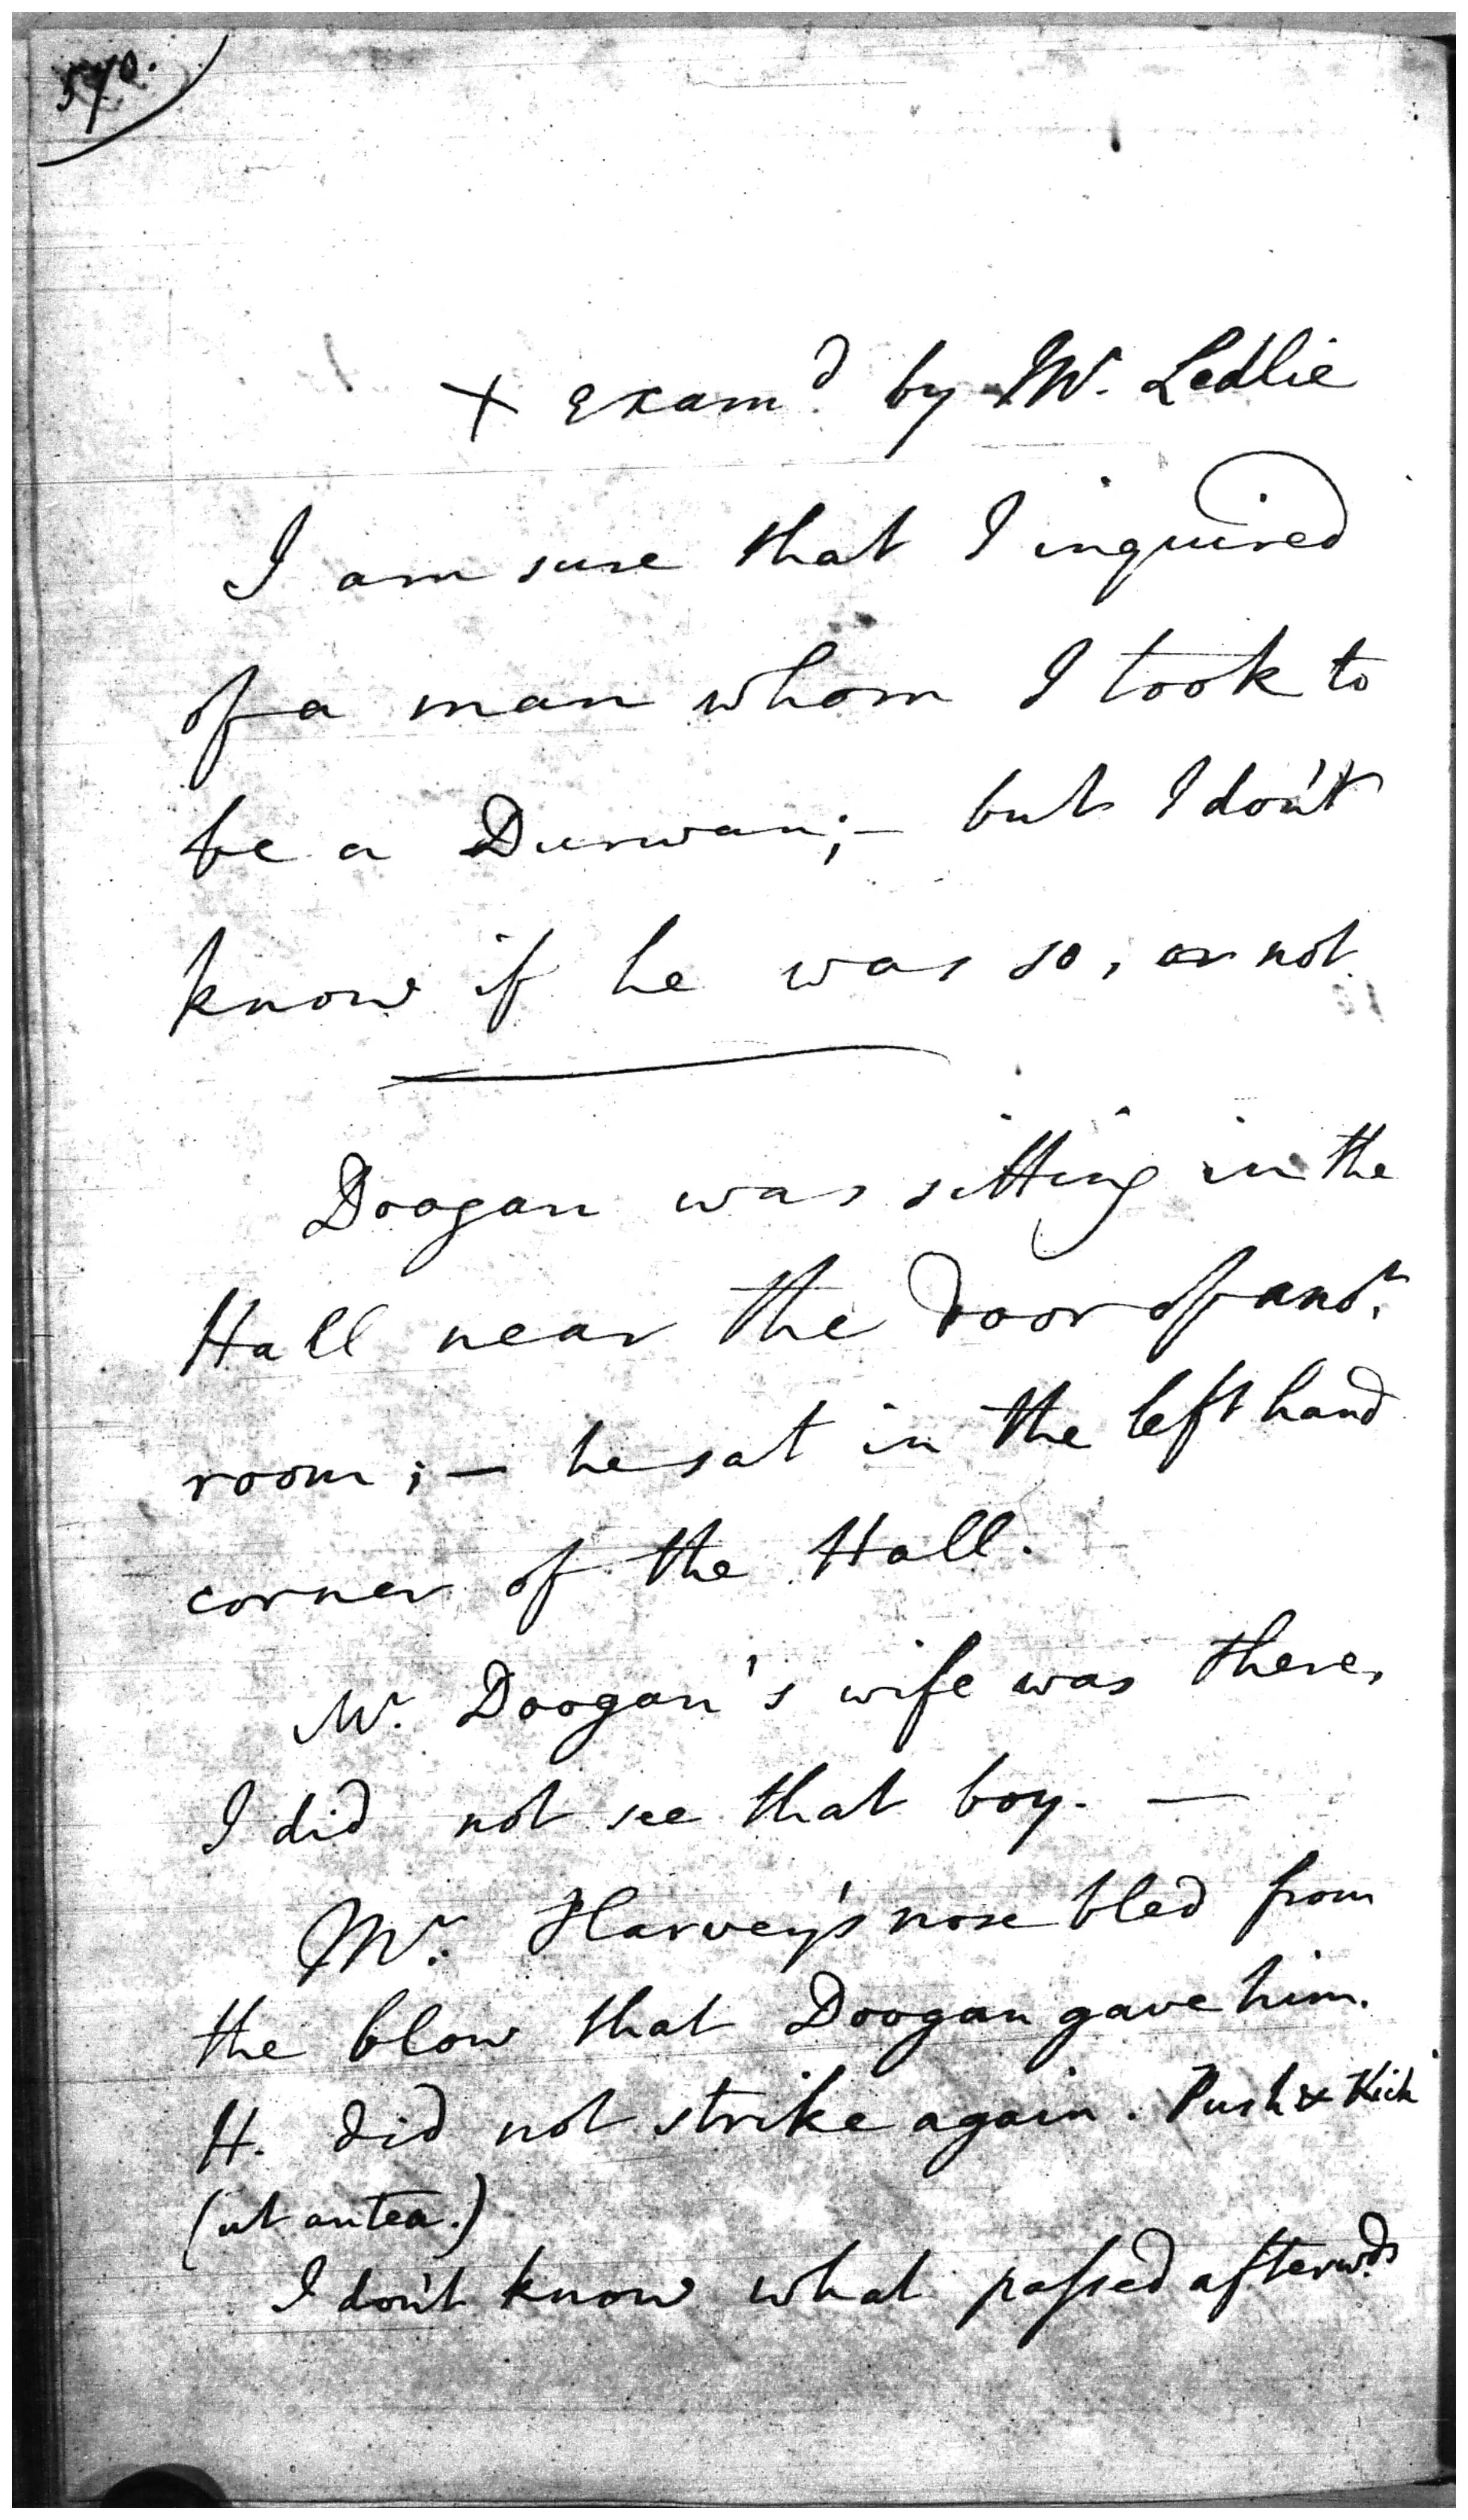 570.
X Exam^d. by Mr. Ledlie
I am sure that I inquired
of a man whom I took to
be a Durwan; — but I don't
know if he was so, or not.
Doogan was sitting in the
Hall near the door of ano^r.
room; — he sat in the left hand
corner of the Hall.
Mr. Doogan's wife was there,
I did not see that boy. —
Mr. Harvey's nose bled from
the blow that Doogan gave him.
H. did not strike again. Push & Kick
(ut antea.)
I don't know what paſsed afterw^ds.